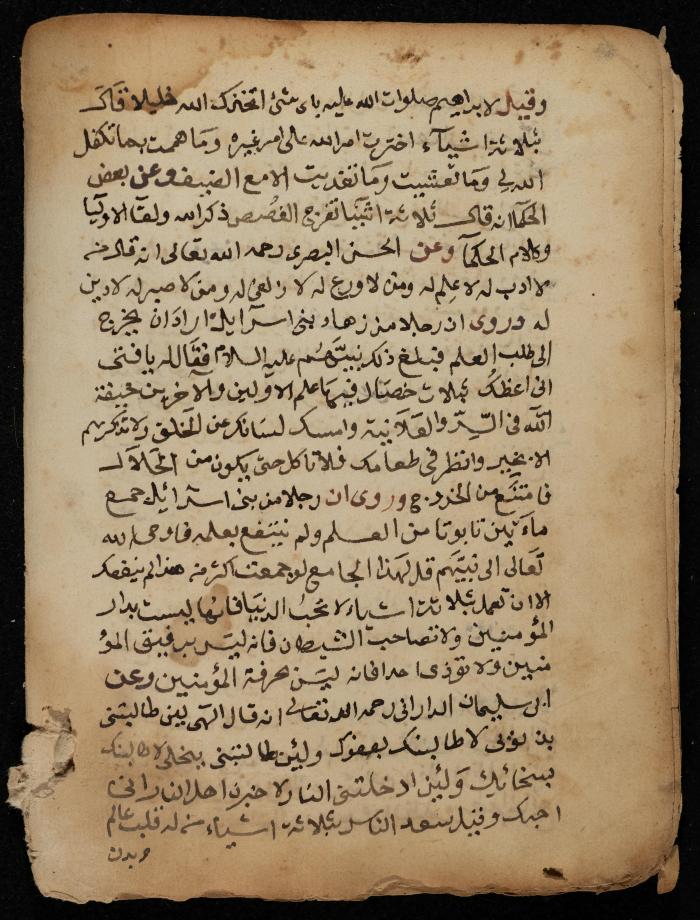 وقيل لابراهيم صلوات الله عليه باى شئ اتخذك الله خليلا قال
بثلاثة اشيآء اخترت امر الله على امر غيره وما هممت بما تكفل
الله لى وما تعشيت وما تغديت الا مع الضيف وعن بعض
الحكما انه قال ثلاثة اشيا تفرج الغصص ذكر الله ولقا الاوليا
وكلام الحكمآ وعن الحسن البصرى رحمه الله تعالى انه قال من
لا ادب له لا علم له ومن لا ورع له لا زلفى له ومن لا صبر له لا دين
له وروى ان رجلا من زهاد بنى اسرآيل اراد ان يخرج
الى طلب العلم فبلغ ذلك نبيهم عليه السلام فقال له يا فتى
انى اعظك بثلاث خصال فيها علم الاولين والاخرين خيفة
الله فى السر والعلانية وامسك لسانك عن الخلق ولا تذكرهم
الا بخير وانظر فى طعامك فلا تاكل حتى يكون من الحلال
فامتنع من الخروج وروى ان رجلا من بنى اسرائيل جمع
ماءتين تابوتا من العلم ولم ينتفع بعلمه فاوحى الله
تعالى الى نبيهم قل لهذا الجامع لو جمعت اكثر من هذا لم ينفعك
الا ان تعمل بثلاثة اشياء لا تحب الدنيا فانها ليست بدار
المؤمنين ولا تصاحب الشيطان فانه ليس برفيق المؤ
منين ولا تؤذى احدا فانه ليس بحرفة المؤمنين وعن
ابى سليمان الدارانى رحمه الله تعالى انه قال الهى لين طالبتنى
بذنوبى لاطالبنك بعفوك ولئن طالبتنى ببخلى لاطالبنك
بسخائك ولئن ادخلتنى النار لاخبرن اهل النار انى
احبك وقيل سعد الناس بثلاثة اشياء من له قلب عالم
وبدن